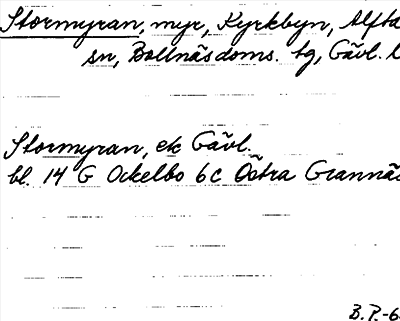 Stormyran, myr, Kyrkbyn, Alfta
sn, Bollnäs doms. tg, Gävl. l
Stormyran, ek Gävl.
bl. 14 G Ockelbo 6c Östra Grannäs
B.P.-6